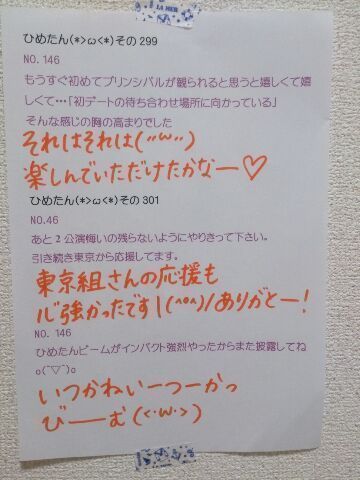 LA MER
ひめたん(*>ω<*)その299
NO. 146
もうすぐ初めてプリンシパルが観られると思うと嬉しくて嬉
しくて…「初デートの待ち合わせ場所に向かっている」
そんな感じの胸の高まりでした
それはそれは(˶˙ω˙˶)
楽しんでいただけたかなー♡
ひめたん(*>ω<*)その301
NO.46
あと2公演悔いの残らないようにやりきって下さい。
引き続き東京から応援してます。
東京組さんの応援も
心強かったです\(^o^)/ありがとー!
NO. 146
ひめたんビームがインパクト強烈やったからまた披露してね
o(^▽^)o
いつかねいーつーかっ
びーーむ(<・ω・>)